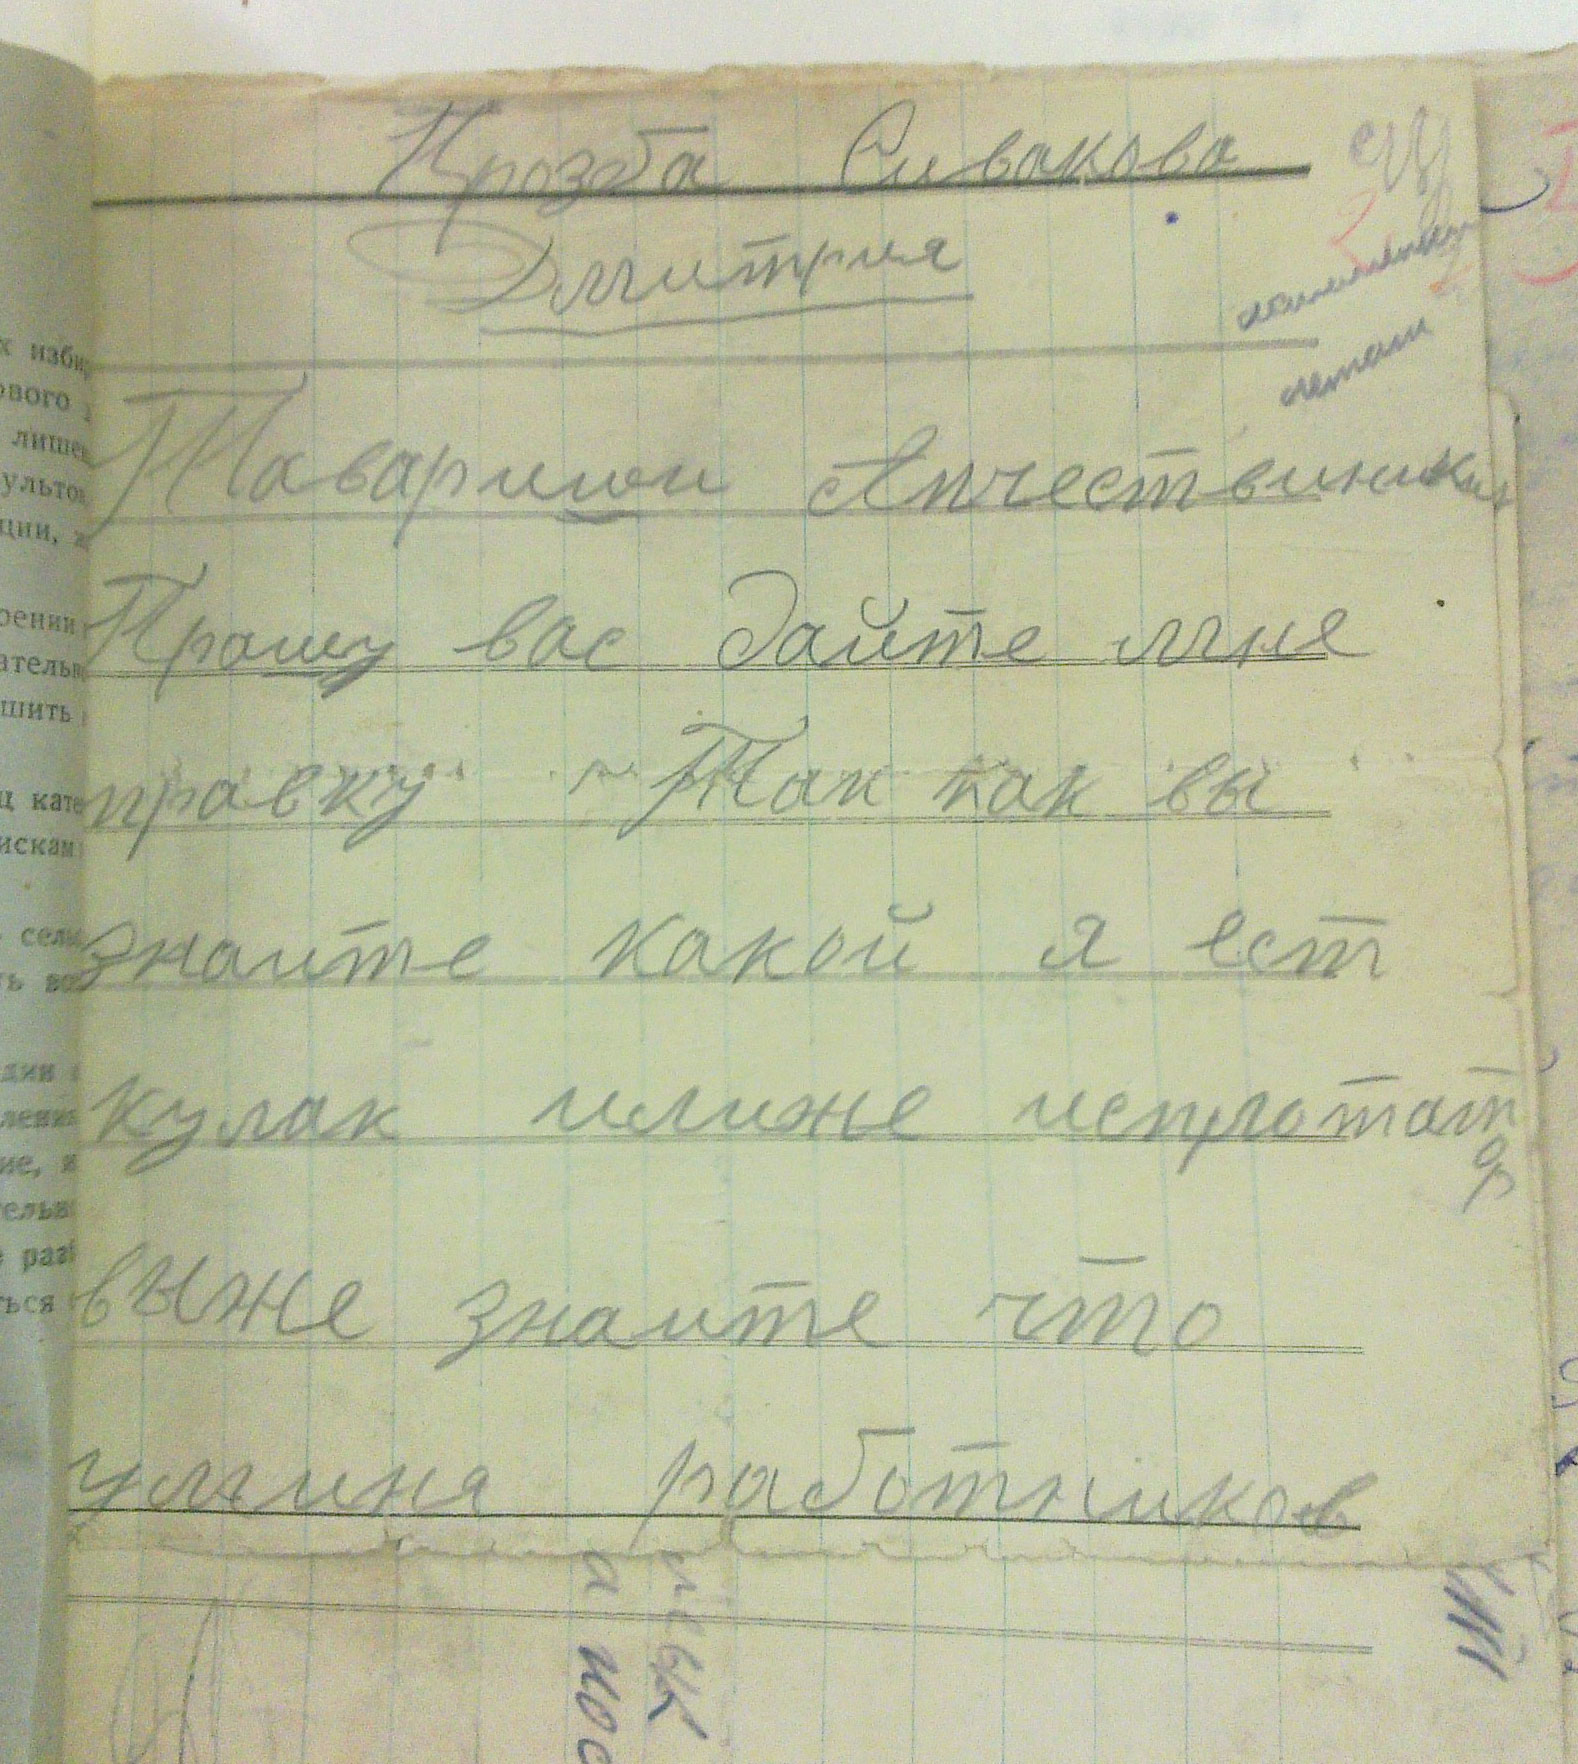 Прозба Сивакова
Дмитрия
Таварищи Апчественики
Прашу вас дайте мне
правку Так как вы
знаите какой я ест
кулак илиже испротат
выже знаите что
уминя работников
х изби
ового
лише
ульто
ции,
рении
ательн
шить
ц кате
искам
сель
ть во
дин
лени
ие,
тельн
разъ
ться